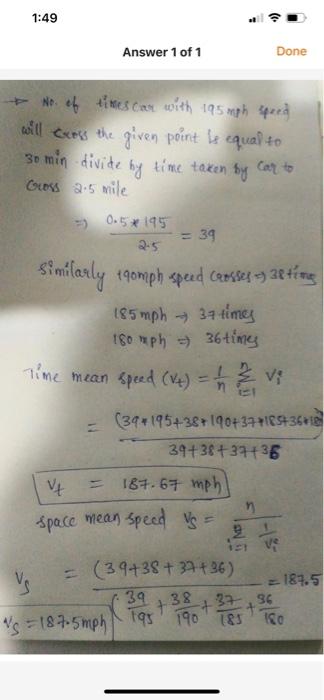 1:49
Answer 1 of 1
Done
→ No. of times car with 195 mph speed
will cross the given point is equal to
30 min divide by time taken by car to
cross 2.5 mile
⇒ 0.5 * 195 / 2.5 = 39
Similarly 190mph speed crosses ⇒ 38 times
185 mph → 37 times
180 mph ⇒ 36 times
Time mean speed (Vt) = 1/n Σ i=1 n Vi
= (39*195+38*190+37*185+36*18 / 39+38+37+36
Vt = 187.67 mph
space mean speed Vs = n / Σ i=1 n 1/Vi
Vs = (39+38+37+36) / (39/195 + 38/190 + 37/185 + 36/180 = 187.5
Vs = 187.5mph